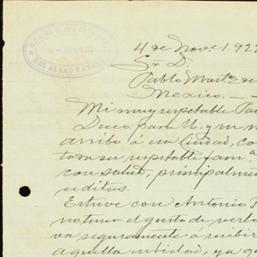 4 de Nov. 192
Sr D.
Pablo Martz de
Mexico.
Mi muy respetable
Deceo para U. y
arribo á su Ciudad, co
toda su respetable fam.ª
con salud, principalm
uditas.
Estuve con Antonio
no tener el gusto de verlo
va seguramente á recibir
aquella entidad, ya q